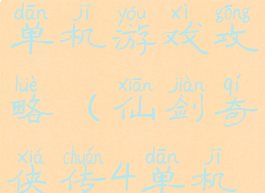 dān jī yóu xì gōng
单机游戏攻
lüè xiān jiàn qí
略（仙剑奇
xiá chuán dān jī
侠传4单机